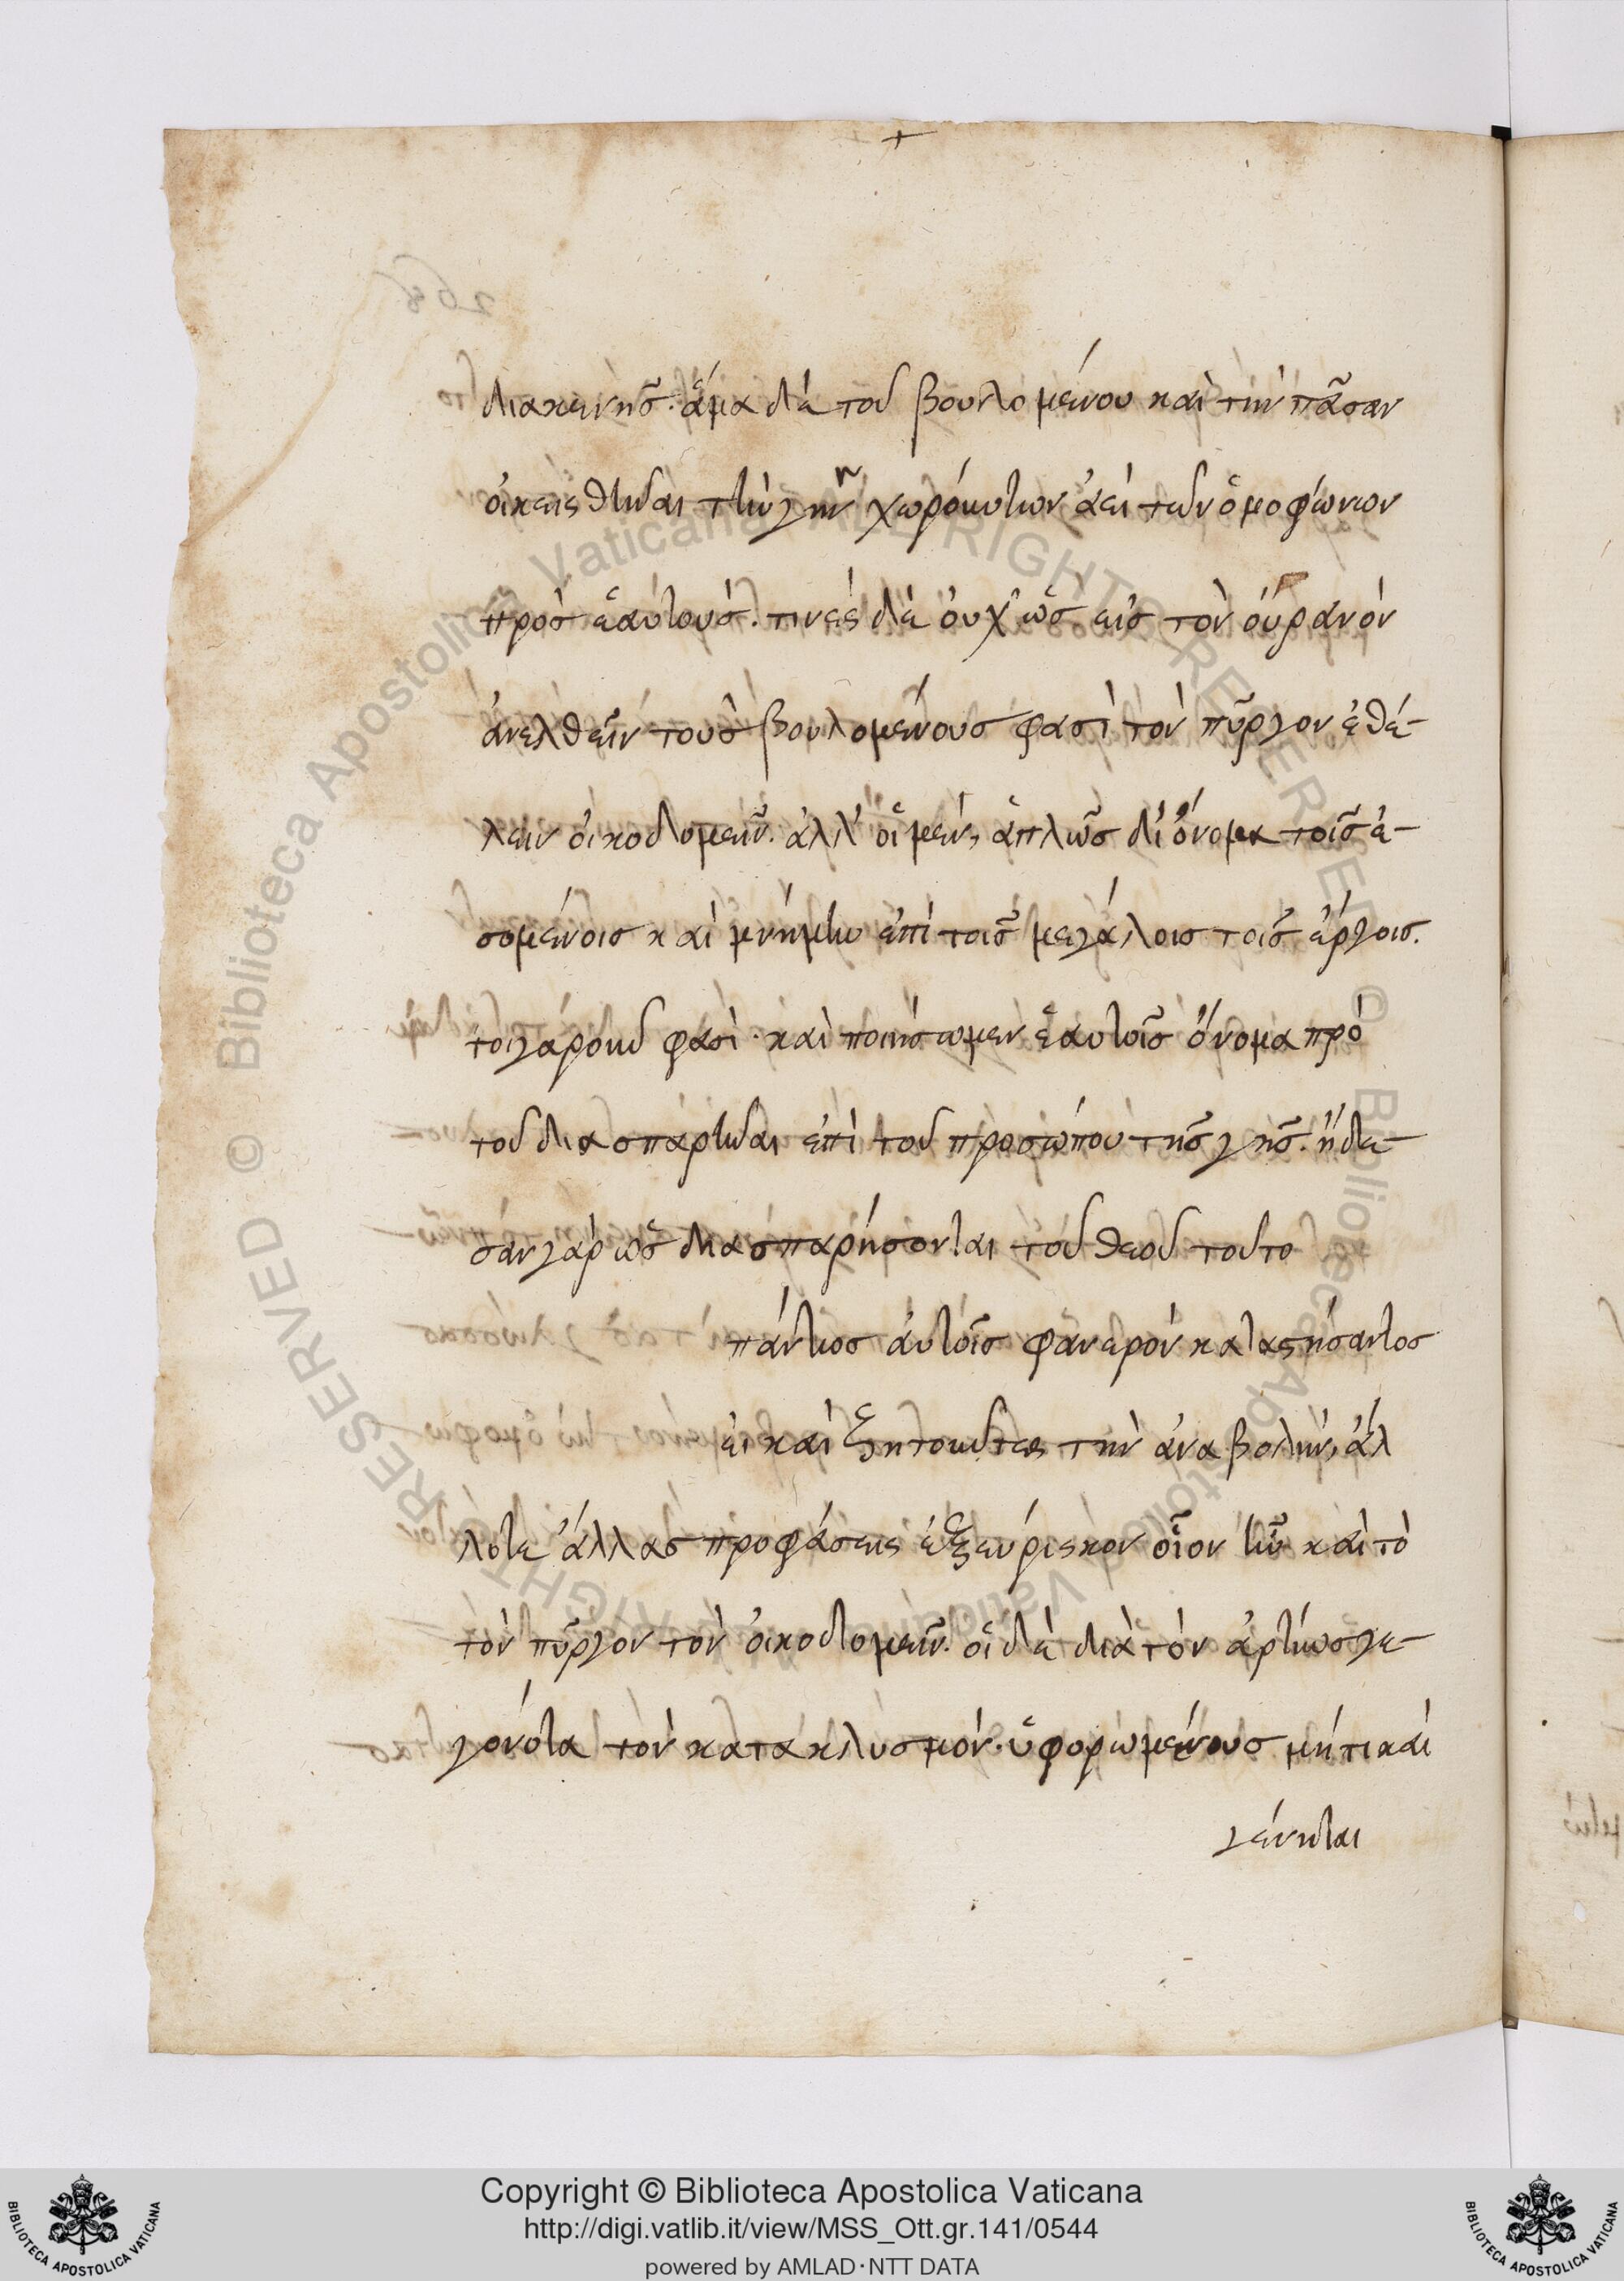 διακενῆς. ἅμα δὲ τοῦ βουλομένου καὶ τὴν πᾶσαν
οἰκεισθῆναι τὴν γῆν χωρούντων ἀεὶ τῶν ὁμοφώνων
πρὸς ἑαυτούς. τινὲς δὲ οὐχ ὡς εἰς τὸν οὐρανὸν
ἀνελθεῖν τοὺς βουλομένους φασὶ τὸν πῦργον ἐθέ-
λειν οἰκοδομεῖν. ἀλλ' οἱ μέν, ἁπλῶς δι' ὄνομα τοῖς ἐ-
σομένοις καὶ μνήμην ἐπὶ τοῖς μεγάλοις τοῖς ἔργοις.
τοιγαροῦν φασὶ. καὶ ποιήσωμεν ἑαυτοῖς ὄνομα πρὸ
τοῦ διασπαρῆναι ἐπὶ τοῦ προσώπου τῆς γῆς. ᾔδε-
σαν γὰρ ὡς διασπαρήσονται τοῦ θεοῦ τοῦτο
πάντως αὐτοῖς φανερὸν καταστήσαντος
εἰ καὶ ζητοῦντες τὴν ἀναβολήν, ἄλ
λοτε ἄλλας προφάσεις ἐξεύρισκον οἷον ἦν καὶ τὸ
τὸν πῦργον τὸν οἰκοδομεῖν. οἱ δὲ διὰ τὸν ἀρτίως γε-
γονότα τὸν κατακλυσμόν. ὑφορωμένους μήτι καὶ
γένηται
Copyright © Biblioteca Apostolica Vaticana
http://digi.vatlib.it/view/MSS_Ott.gr.141/0544
powered by AMLAD·NTT DATA
BIBLIOTECA APOSTOLICA VATICANA
BIBLIOTECA APOSTOLICA VATICANA